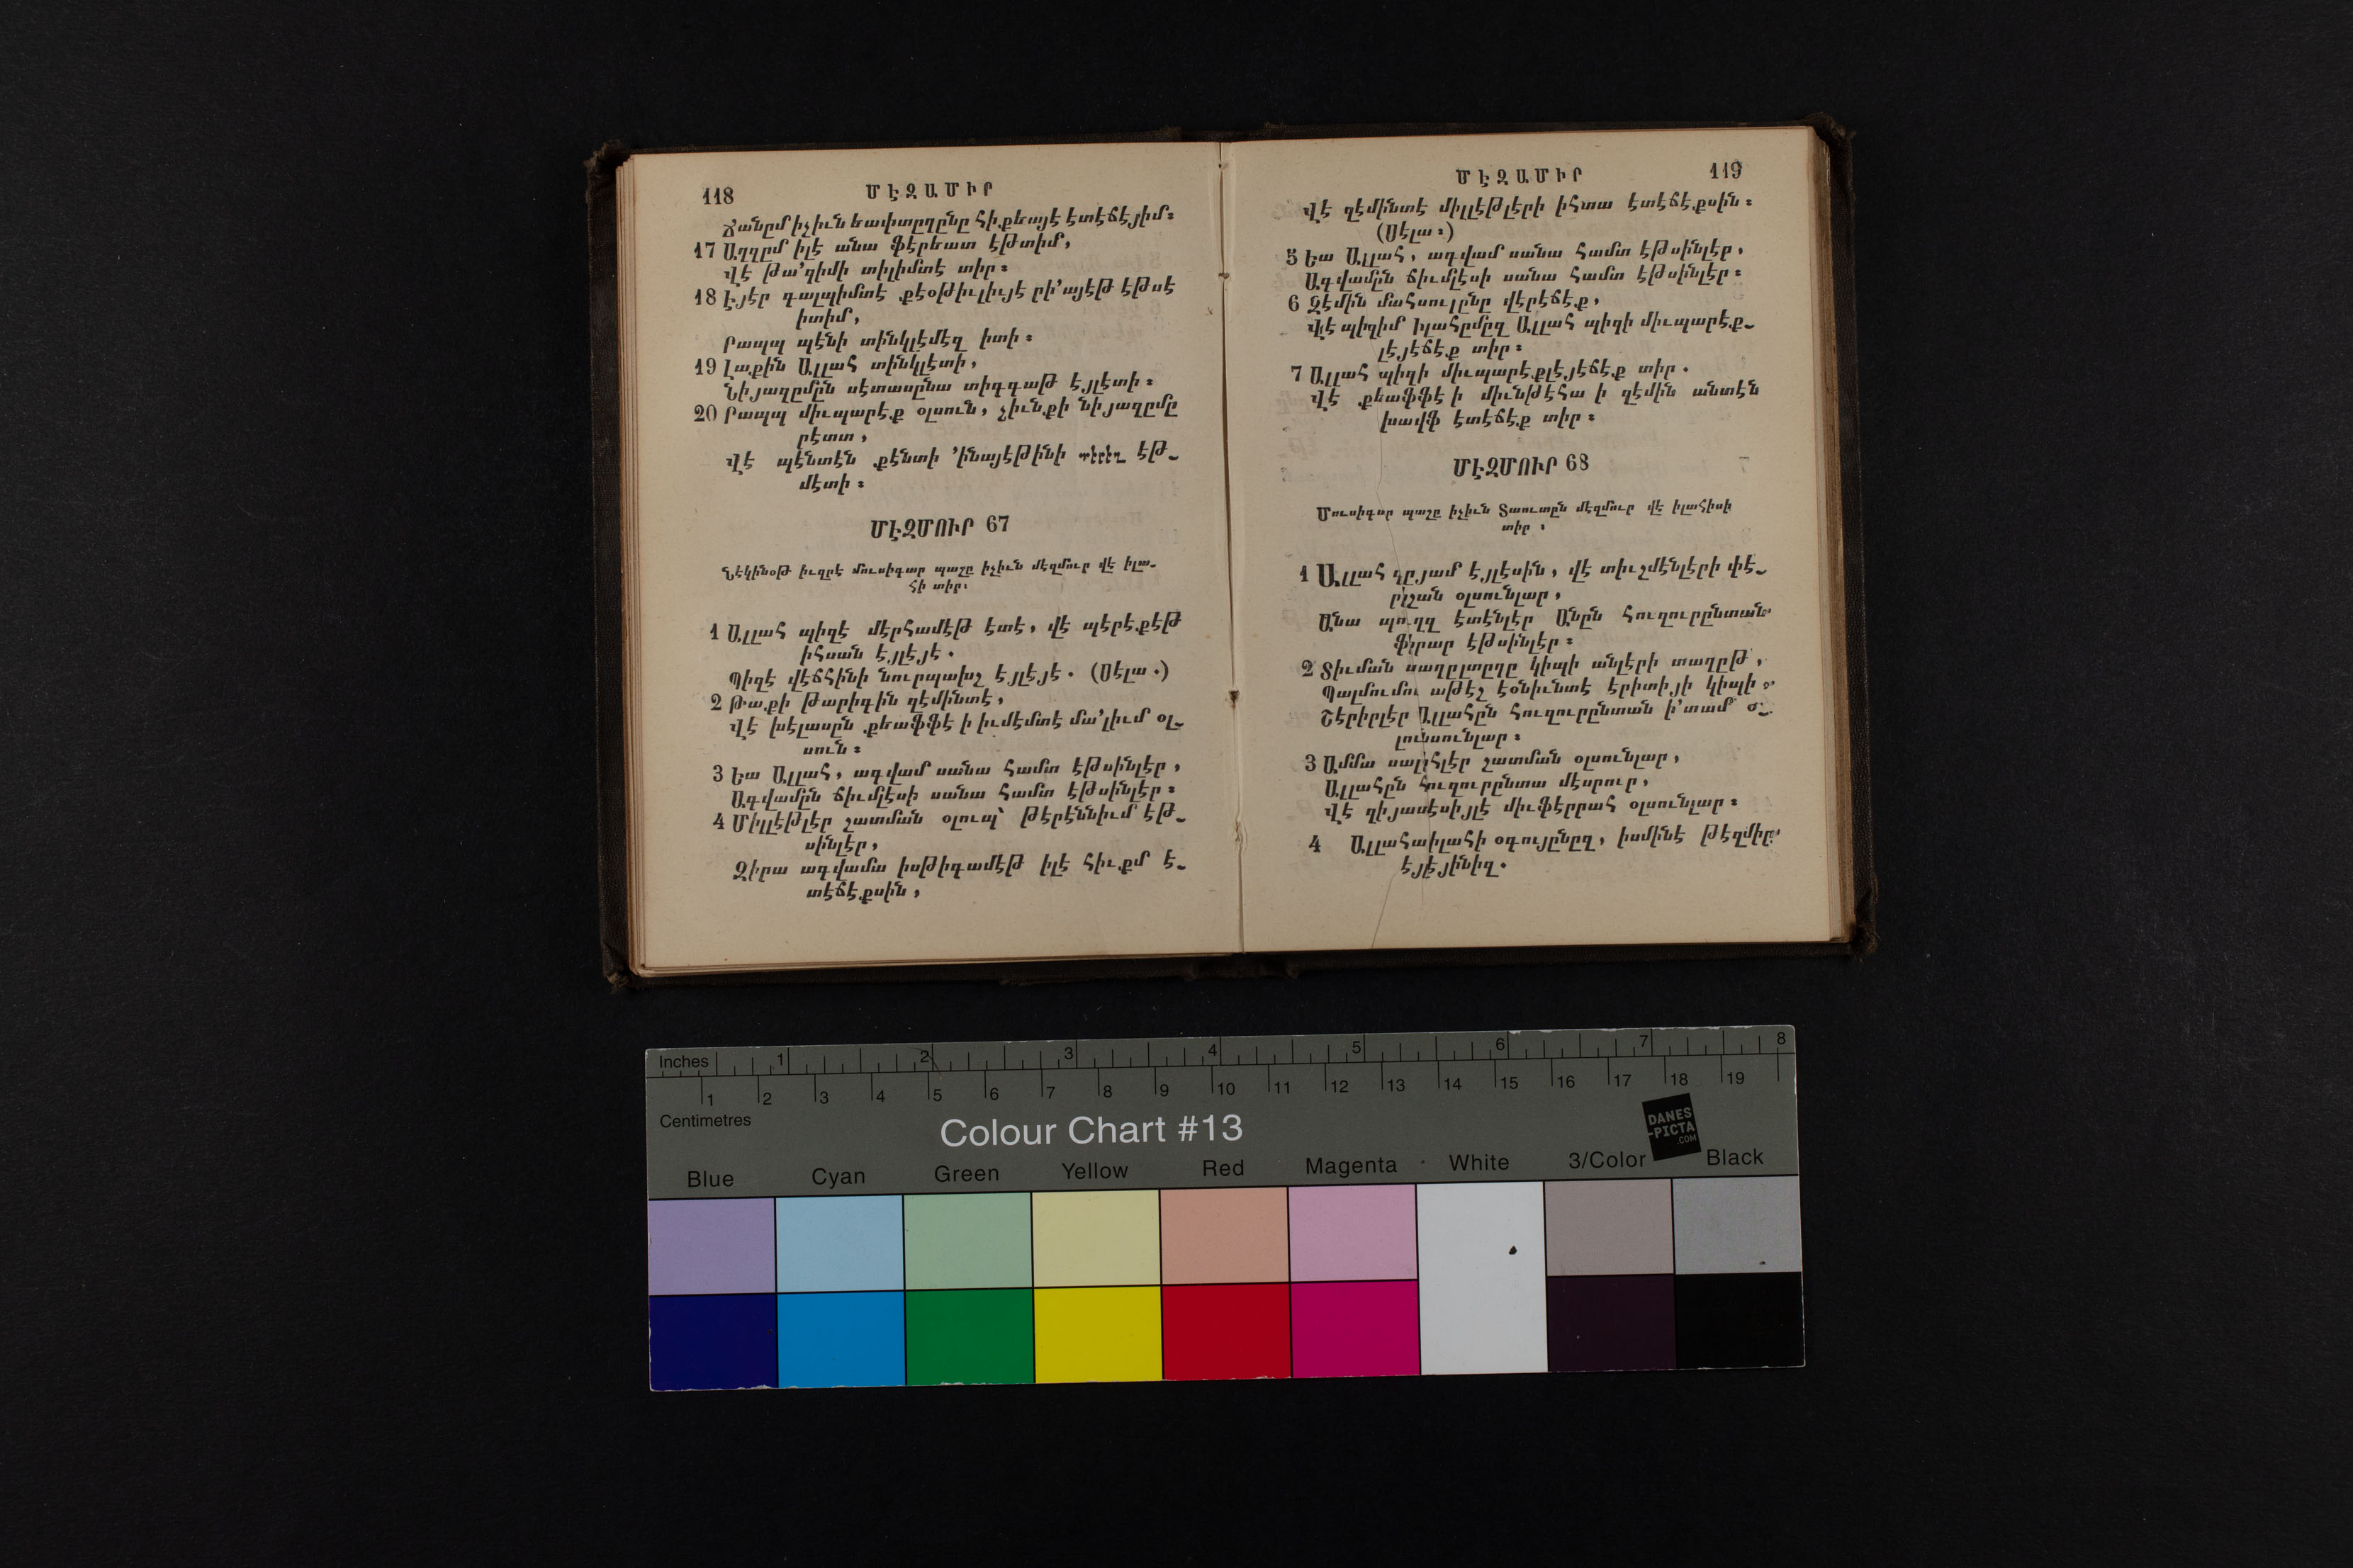 118 ՄԷԶԱՄԻՐ
Ճանըմ իչիւն եափտըղընը հիքեայէ էտէճէյիմ։
17 Աղզըմ իլէ անա ֆէրեատ էթտիմ,
Վէ թա՚զիմի տիլիմտէ տիր։
18 Էյէր գալպիմտէ քէօթիւլիւյէ րի՚այէթ էթսէ
իտիմ,
Րապպ պէնի տինկլէմէզ իտի։
19 Լաքին Ալլահ տինկլէտի,
Նիյազըմըն սէտասընա տիգգաթ էյլէտի։
20 Րապպ միւպարէք օլսուն, չիւնքի նիյազըմը
րէտտ,
Վէ պէնտէն քէնտի ՚ինայէթինի տէրէղ էթ-
մէտի։
ՄԷԶՄՈՒՐ 67
Նէկինօթ իւզրէ մուսիգար պաշը իչիւն մէզմուր վէ իլա-
հի տիր։
1 Ալլահ պիզէ մէրհամէթ էտէ, վէ պէրէքէթ
իհսան էյլէյէ.
Պիզէ վէճհինի նուրպախշ էյլէյէ. (Սէլա.)
2 Թա քի թարիգին զէմինտէ,
Վէ խէլասըն քեաֆֆէ ի իւմէմտէ մա՚լիւմ օլ-
սուն։
3 Եա Ալլահ, ագվամ սանա համտ էթսինլէր,
Ագվամըն ճիւմլէսի սանա համտ էթսինլէր։
4 Միլլէթլէր շատման օլուպ՝ թէրէննիւմ էթ-
սինլէր,
Զիրա ագվամա իսթիգամէթ իլէ հիւքմ է-
տէճէքսին,
ՄԷԶԱՄԻՐ 119
Վէ զէմինտէ միլլէթլէրի իհտա էտէճէքսին։
(Սէլա։)
5 Եա Ալլահ, ագվամ սանա համտ էթսինլէր,
Ագվամըն ճիւմլէսի սանա համտ էթսինլէր։
6 Զէմին մահսուլընը վէրէճէք,
Վէ պիզիմ Իլահըմըզ Ալլահ պիզի միւպարէք-
լէյէճէք տիր։
7 Ալլահ պիզի միւպարէքլէյէճէք տիր.
Վէ քեաֆֆէ ի միւնթէհա ի զէմին անտէն
խավֆ էտէճէք տիր։
ՄԷԶՄՈՒՐ 68
Մուսիգար պաշը իչիւն Տաուտըն մէզմուր վէ իլահիսի
տիր։
1 Ալլահ գըյամ էյլէսին, վէ տիւշմէնլէրի փէ-
րիշան օլսունլար,
Անա պուղզ էտէնլէր Անըն հուզուրընտան
ֆիրար էթսինլէր։
2 Տիւման սաղըլտըղը կիպի անլէրի տաղըթ,
Պալմումու աթէշ էօնիւնտէ էրիտիյի կիպի
Շէրիրլէր Ալլահըն հուզուրընտան ի՚տամ օ-
լունսունլար։
3 Ամմա սալիհլէր շատման օլսունլար,
Ալլահըն հուզուրընտա մէսրուր,
Վէ զիյատէսիյլէ միւֆէրրահ օլսունլար։
4 Ալլահա իլահի օգույընըզ, իսմինէ թէզմիր
էյլէյինիզ.
Inches 1 2 3 4 5 6 7 8
1 2 3 4 5 6 7 8 9 10 11 12 13 14 15 16 17 18 19
Centimetres
Colour Chart #13
DANES
-PICTA
.COM
Blue Cyan Green Yellow Red Magenta White 3/Color Black